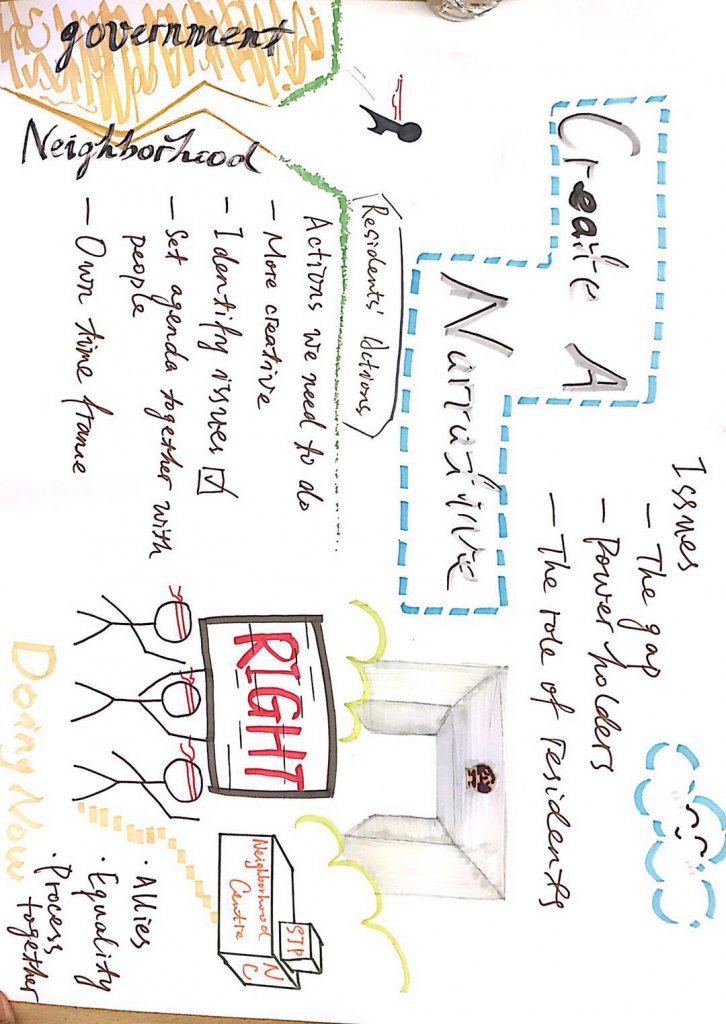 Create A
Narrative
Issues
— The gap
— Power holders
— The role of residents
government
Neighborhood
Residents' Actions
Actions we need to do
— More creative
— Identify issues ☑
— Set agenda together with
people
— Own time frame
RIGHT
STP
Neighborhood
Centre
N
C
Doing Now
· Allies
· Equality
· Process
together